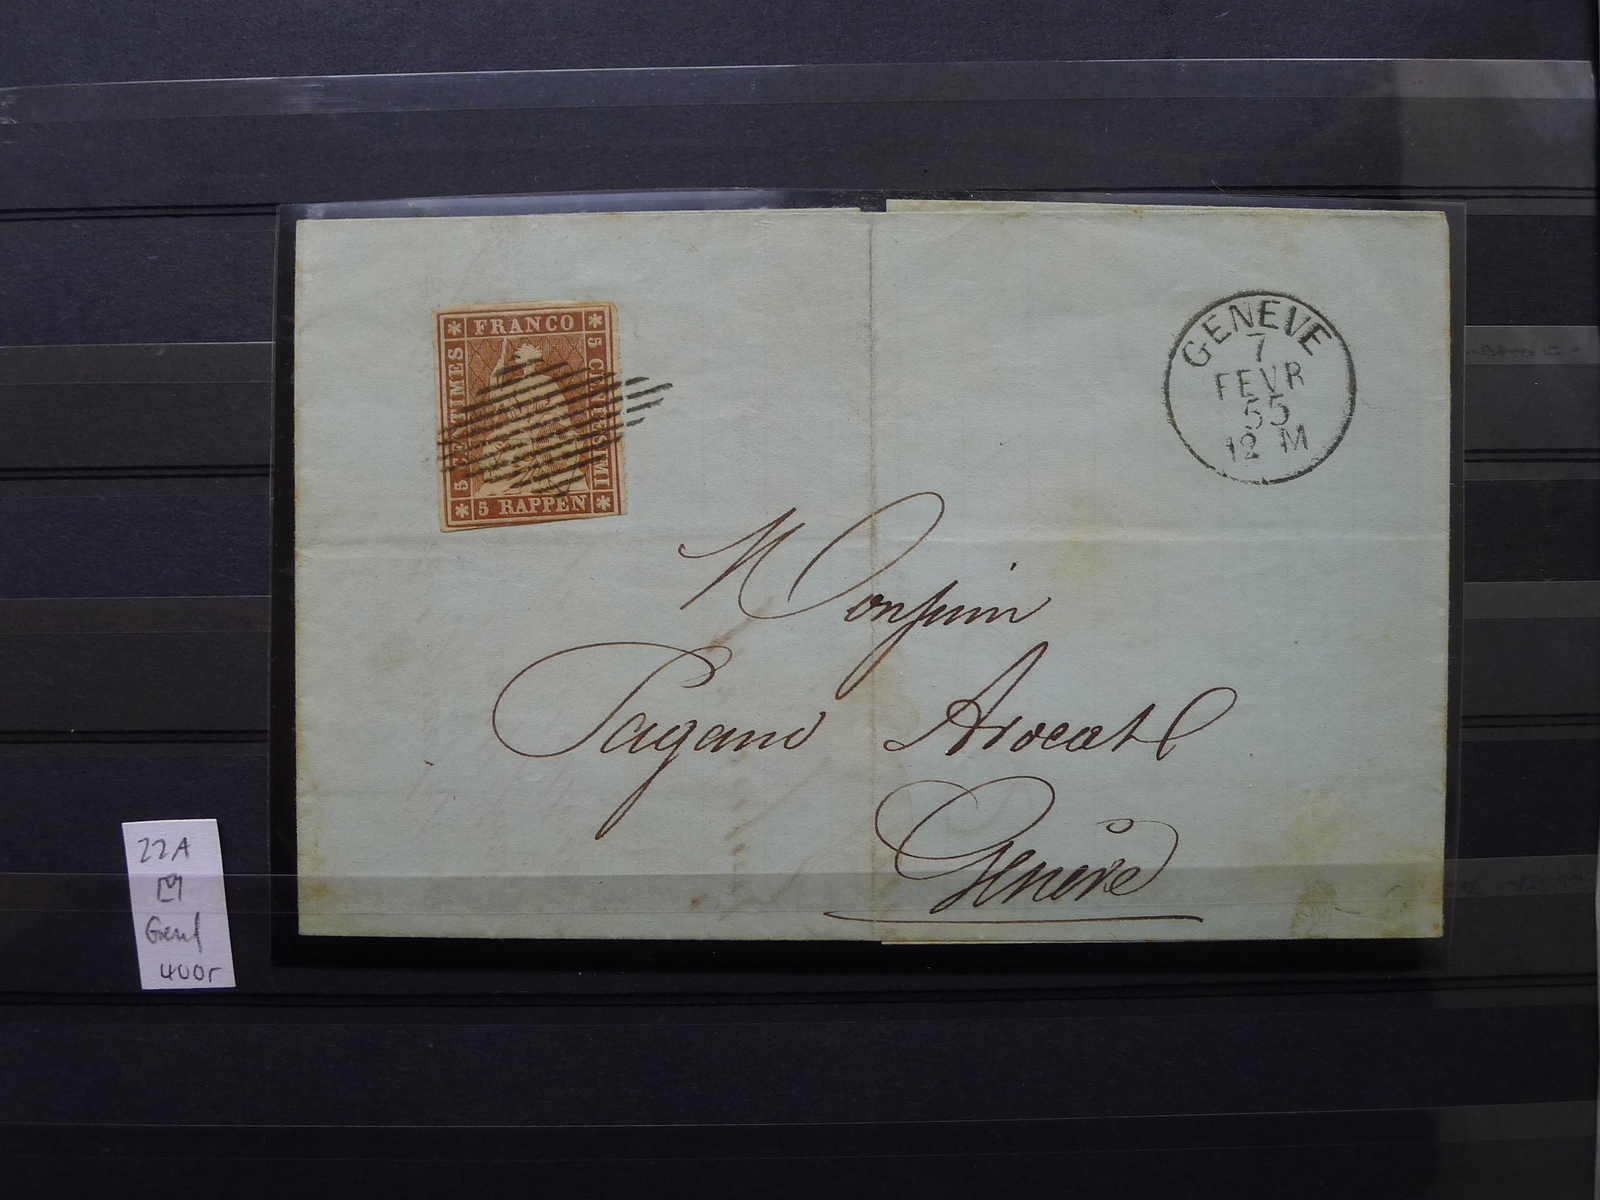 FRANCO
5 CENTIMES
5 CENTESIMI
5 RAPPEN
GENEVE
7
FEVR
55
12 M
Monsieur
Pagano Avocat
Genève
22A
400r